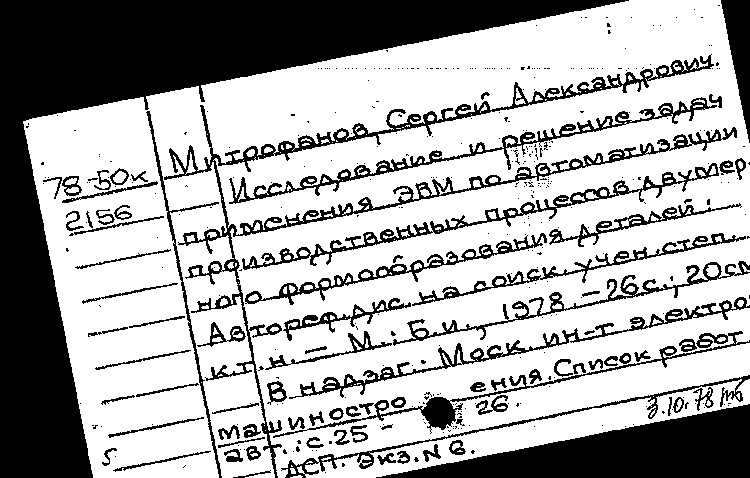 Митрофанов, Сергей Александрович.
78-50к
Исследование и решение задач
2156
применения ЭВМ по автоматизации
производственных процессов двумер-
ного формообразования деталей:
Автореф. дис. на соиск. учен. степ.
к.т.н. — М.: Б.и., 1978. — 26с.; 20см
В надзаг.: Моск. ин-т электро
машиностро ения. Список работ
авт.: с.25 - 26.
3.10.78
ДСП. Экз. N 6.
5